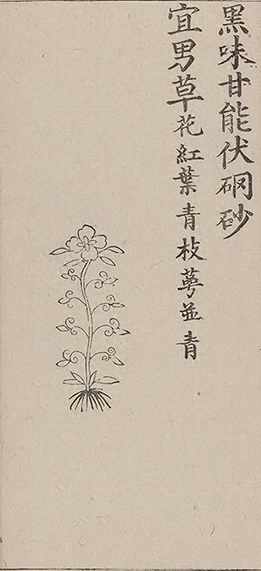 黑味甘能伏硇砂
宜男草花紅葉青枝蕚並青